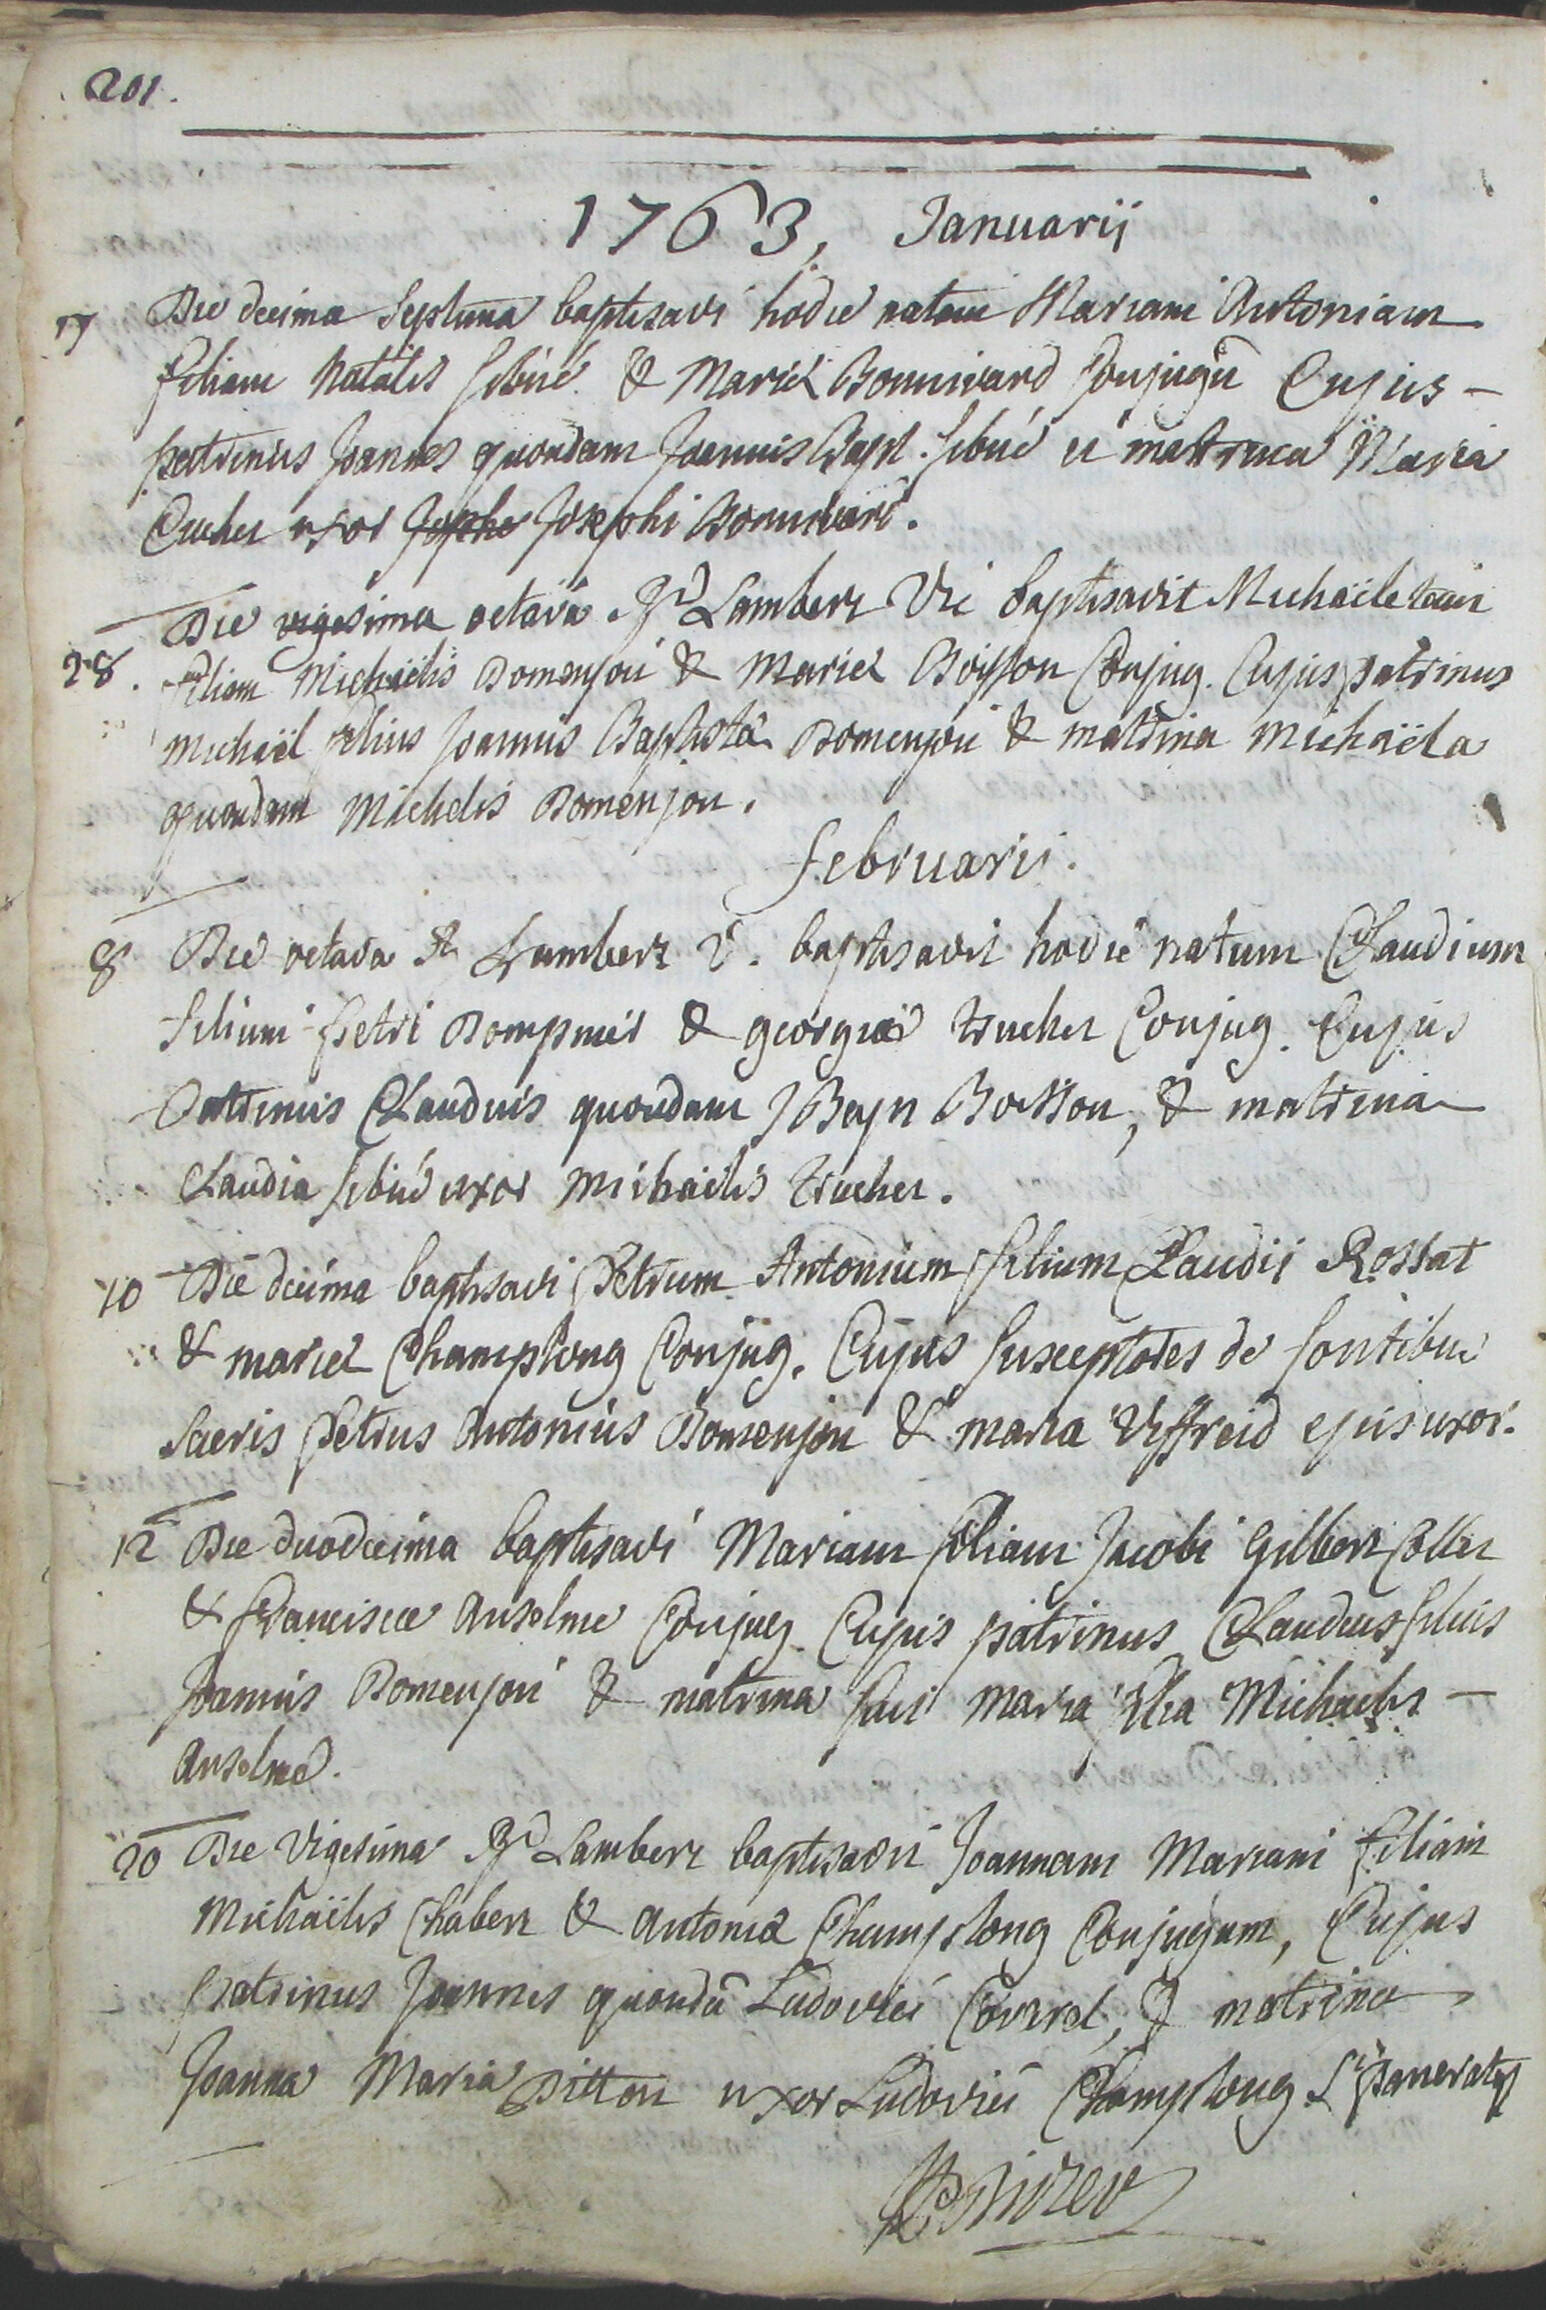 201.
1763, Januarii
17 Die decima Septima baptisavi hodie natam Mariam Antoniam
filiam Natalis Sibué & Mariæ Bonnivard Conjugū Cujus –
patrinus Joannes quondam Joannis Bapt. Sibué et matrina Maria
uxor Josephi Bonnivard.
28. Die vigesima octava Rd Lambert Vic baptisavit Michaëletam
filiam Michaëlis Domenjou & Mariæ Boisson Conjug. Cujus patrinus
Michaël filius Joannis Baptistæ Domenjou & matrina Michaëla
quondam Michelis Domenjou.
februarii.
8 Die octava Rd Lambert V. baptisavit hodie natum Claudium
filium Petri Dompmer & georgiæ trucher Conjug. Cujus
Patrinus Claudius quondam J Bapt Boisson, & matrina
Claudia Sibué uxor Michaëlis trucher.
10 Die decima baptisavi Petrum Antonium filium Claudii Rossat
& mariæ Champlong Conjug. Cujus susceptores de fontibus
Sacris Petrus Antonius Domenjou & maria Uffreid ejus uxor.
12 Die duodecima baptisavi Mariam filiam Jacobi Gilbert Collet
& Franciscæ Anselme Conjug. Cujus patrinus Claudius filius
Joannis Domenjou & matrina fuit Maria filia Michaelis –
Anselme.
20 Die Vigesima Rd Lambert baptisavit Joannam Mariam filiam
Michaëlis Chabert & Antoniæ Champlong Conjugum, Cujus
patrinus Joannes quondā Ludovici Covarel, & matrina
Joanna Maria Ditton uxor Ludovici Champlong St Pancratii